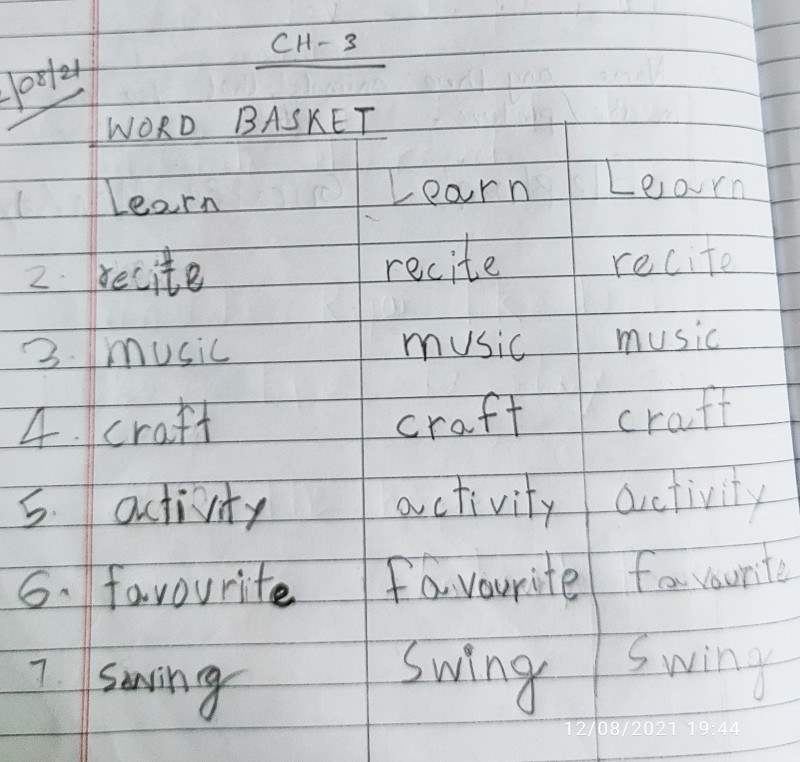 CH-3
2/08/21
WORD BASKET
1. Learn Learn Learn
2. recite recite recite
3. music music music
4. craft craft craft
5. activity activity activity
6. favourite favourite favourite
7. swing swing swing
12/08/2021 19:44